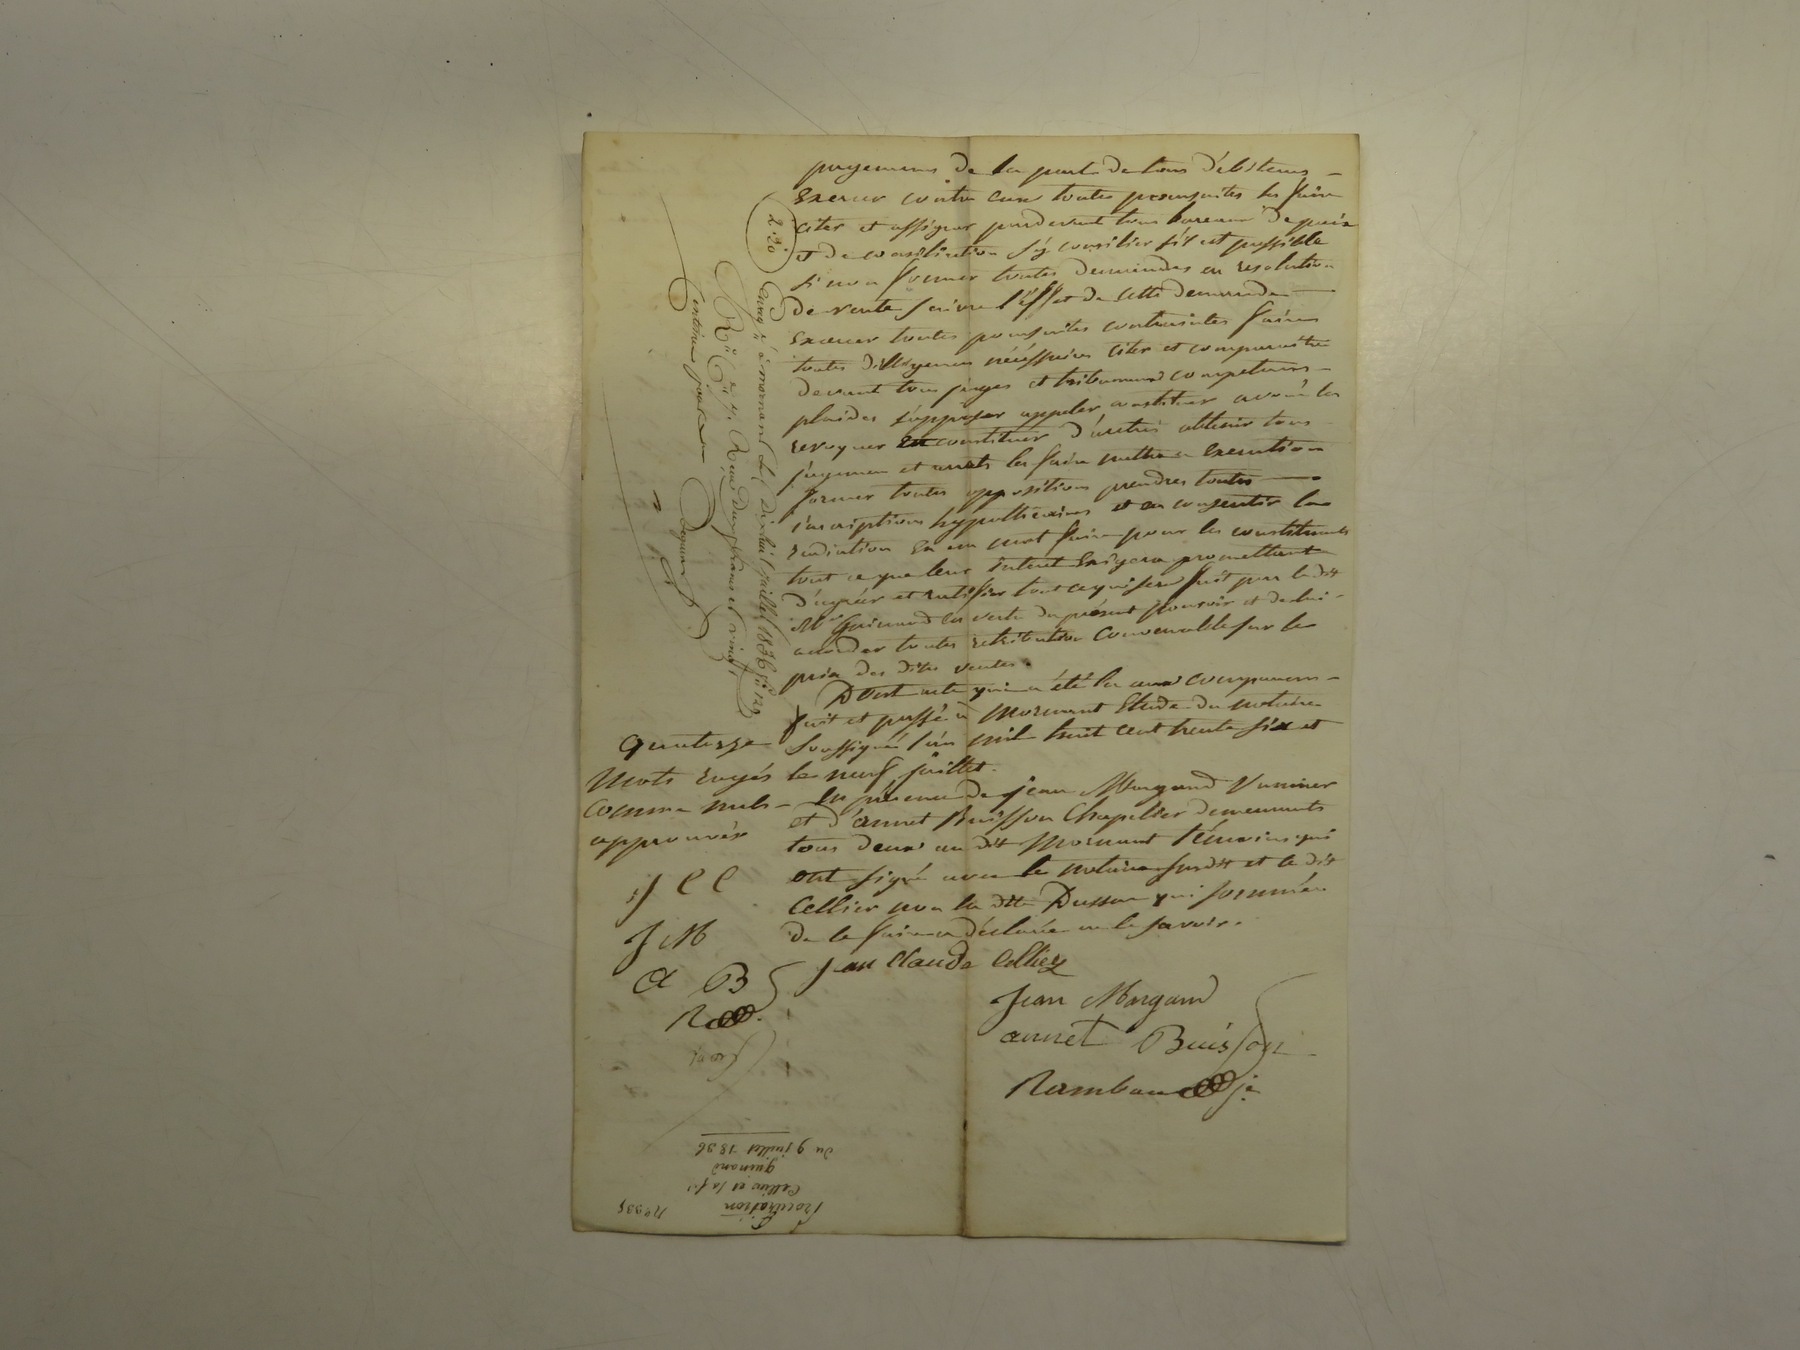 payemens de la part de tous débiteurs
Exercer contre eux toutes poursuites les faire
citer et assigner pardevant tous bureaux de paix
et de conciliation s'y concilier s'il est possible
sinon former toutes demandes en resolution
de vente suivre l'Effet de cette demande
Exercer toutes poursuites contraintes faire
toutes diligences nécéssaires citer et comparaitre
devant tous juges et tribunaux competens
plaider s'opposer appeler constituer avoué les
revoquer En constituer d'autres obtenir tous
jugemens et arrets les faire mettre a Execution
former toutes oppositions prendres toutes
inscriptions hypothécaires et en consentir la
radiation Et en un mot faire pour les constituants
tout ce que leur interet Exigera promettant
d'agréer et ratifier tout ce qui sera fait par le dit
Mr Guinand en vertu du présent pouvoir et de lui
accorder toutes retribution Convenable sur le
prix des dites ventes.
Dont acte qui a été lu aux comparans
fait et passé à Mornant Etude du notaire
soussigné l'an mil huit cent trente six et
le neuf juillet.
En présence de jean Margand
et d'annet Buisson Chapelier demeurants
tous deux au dit Mornant témoins qui
ont signé avec le notaire susdit et le dit
Cellier non la dite Dussuc qui sommée
de le faire a déclarée ne le savoir.
jean Claude Cellier
Jean Margand
annet Buisson
Rambaud je
2.20
Enreg.é à mornant Le Dix huit juillet 1836
Reçu Deux francs et vingt
centimes
quatorze
Mots rayés
Comme nuls
approuvés
J C C
J M
A B
R
No 335
Procuration
Cellier et sa fe
guinand
du 9 juillet 1836